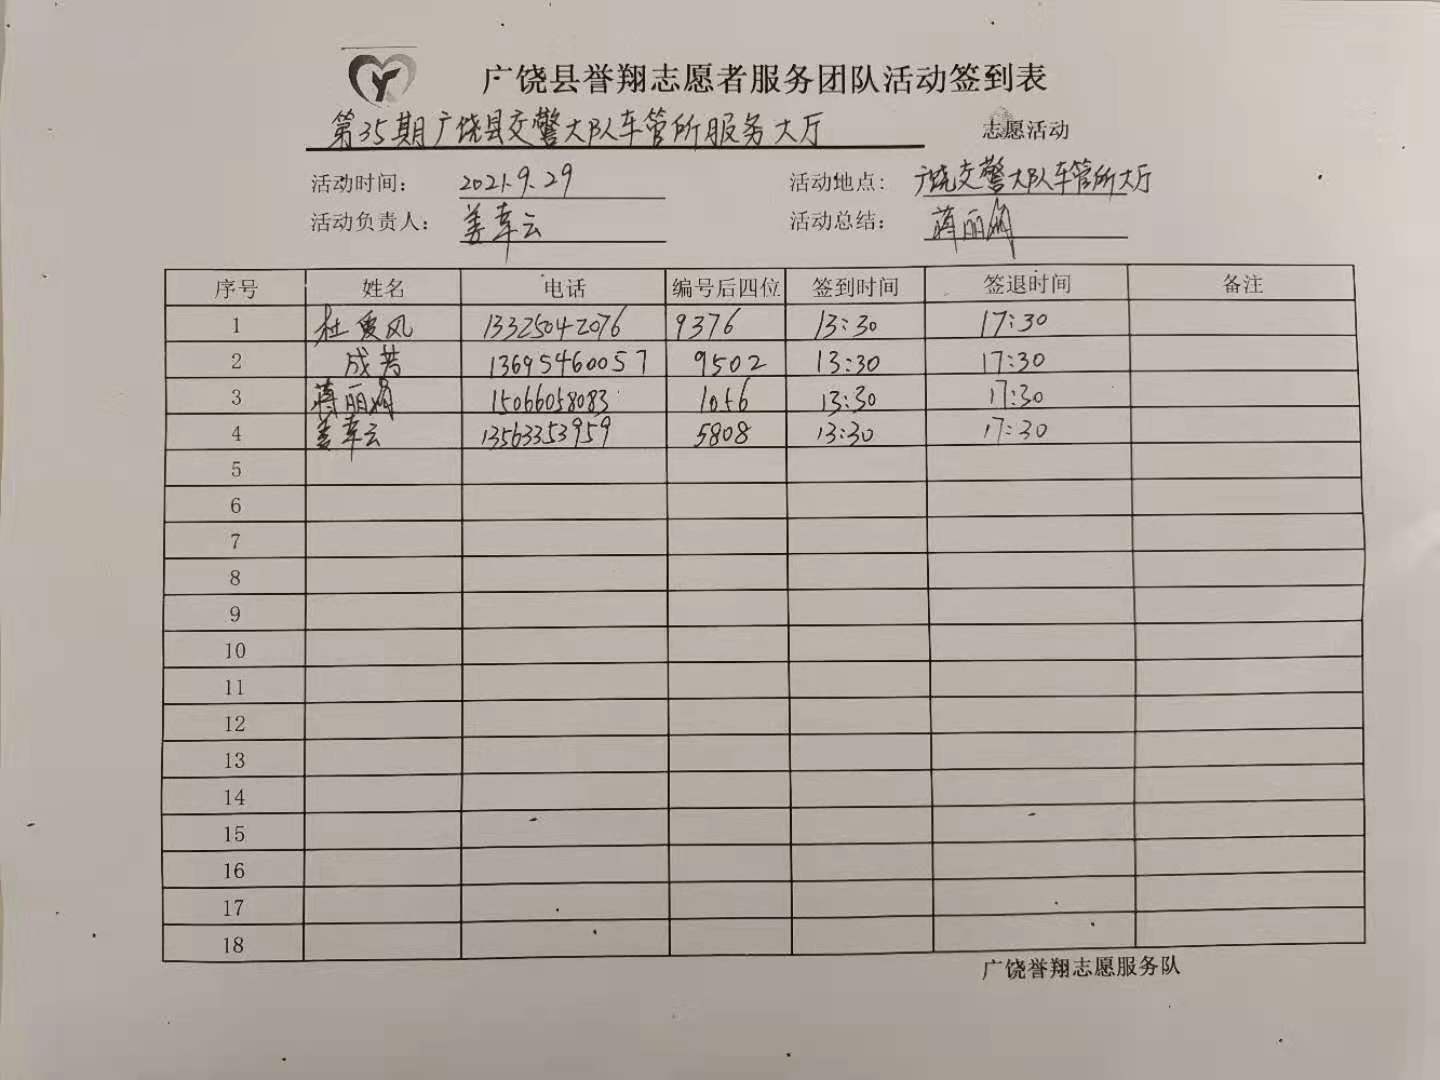 广饶县誉翔志愿者服务团队活动签到表
第35期广饶县交警大队车管所服务大厅 志愿活动
活动时间： 2021.9.29 活动地点： 广饶交警大队车管所大厅
活动负责人： 姜幸云 活动总结： 蒋丽娟
序号 姓名 电话 编号后四位 签到时间 签退时间 备注
1 杜爱风 13325042076 9376 13:30 17:30
2 成芳 13695460057 9502 13:30 17:30
3 蒋丽娟 15066058083 1056 13:30 17:30
4 姜幸云 13563353959 5808 13:30 17:30
5
6
7
8
9
10
11
12
13
14
15
16
17
18
广饶誉翔志愿服务队